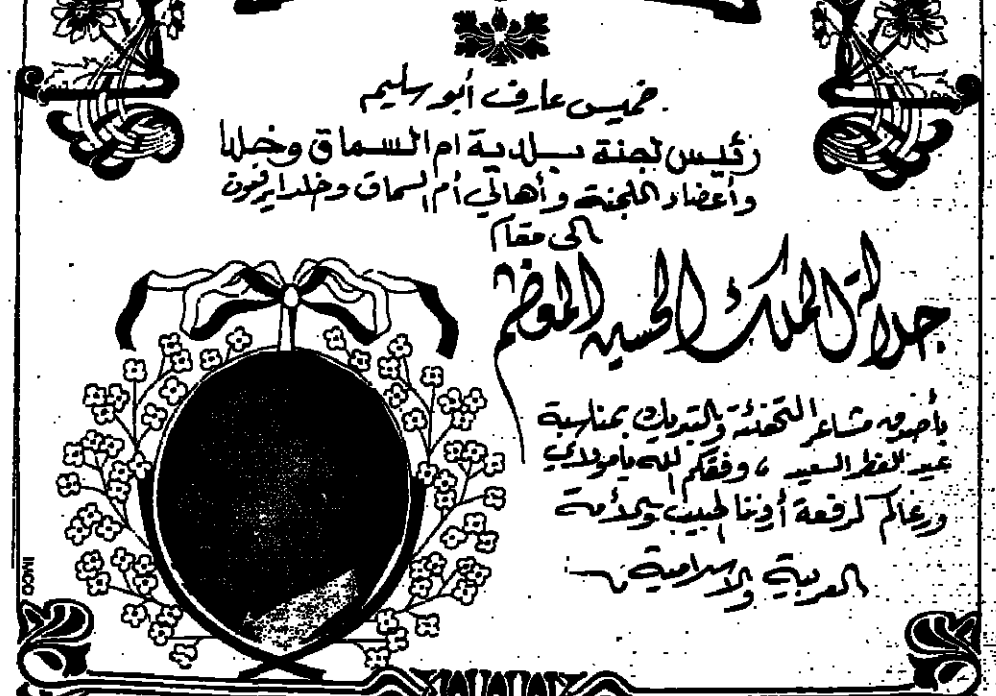 خميس عارف أبو سليم
رئيس لجنة بلدية ام السماق وخلدا
وأعضاء اللجنة وأهالي أم السماق وخلدا يرفعون
الى مقام
جلالة الملك الحسين المعظم
بأصدق مشاعر التهنئة والتبريك بمناسبة
عيد الفطر السعيد ، وفقكم الله يا مولاي
ورعاكم لرفعة أردننا الحبيب والأمة
العربية والاسلامية
IMCO